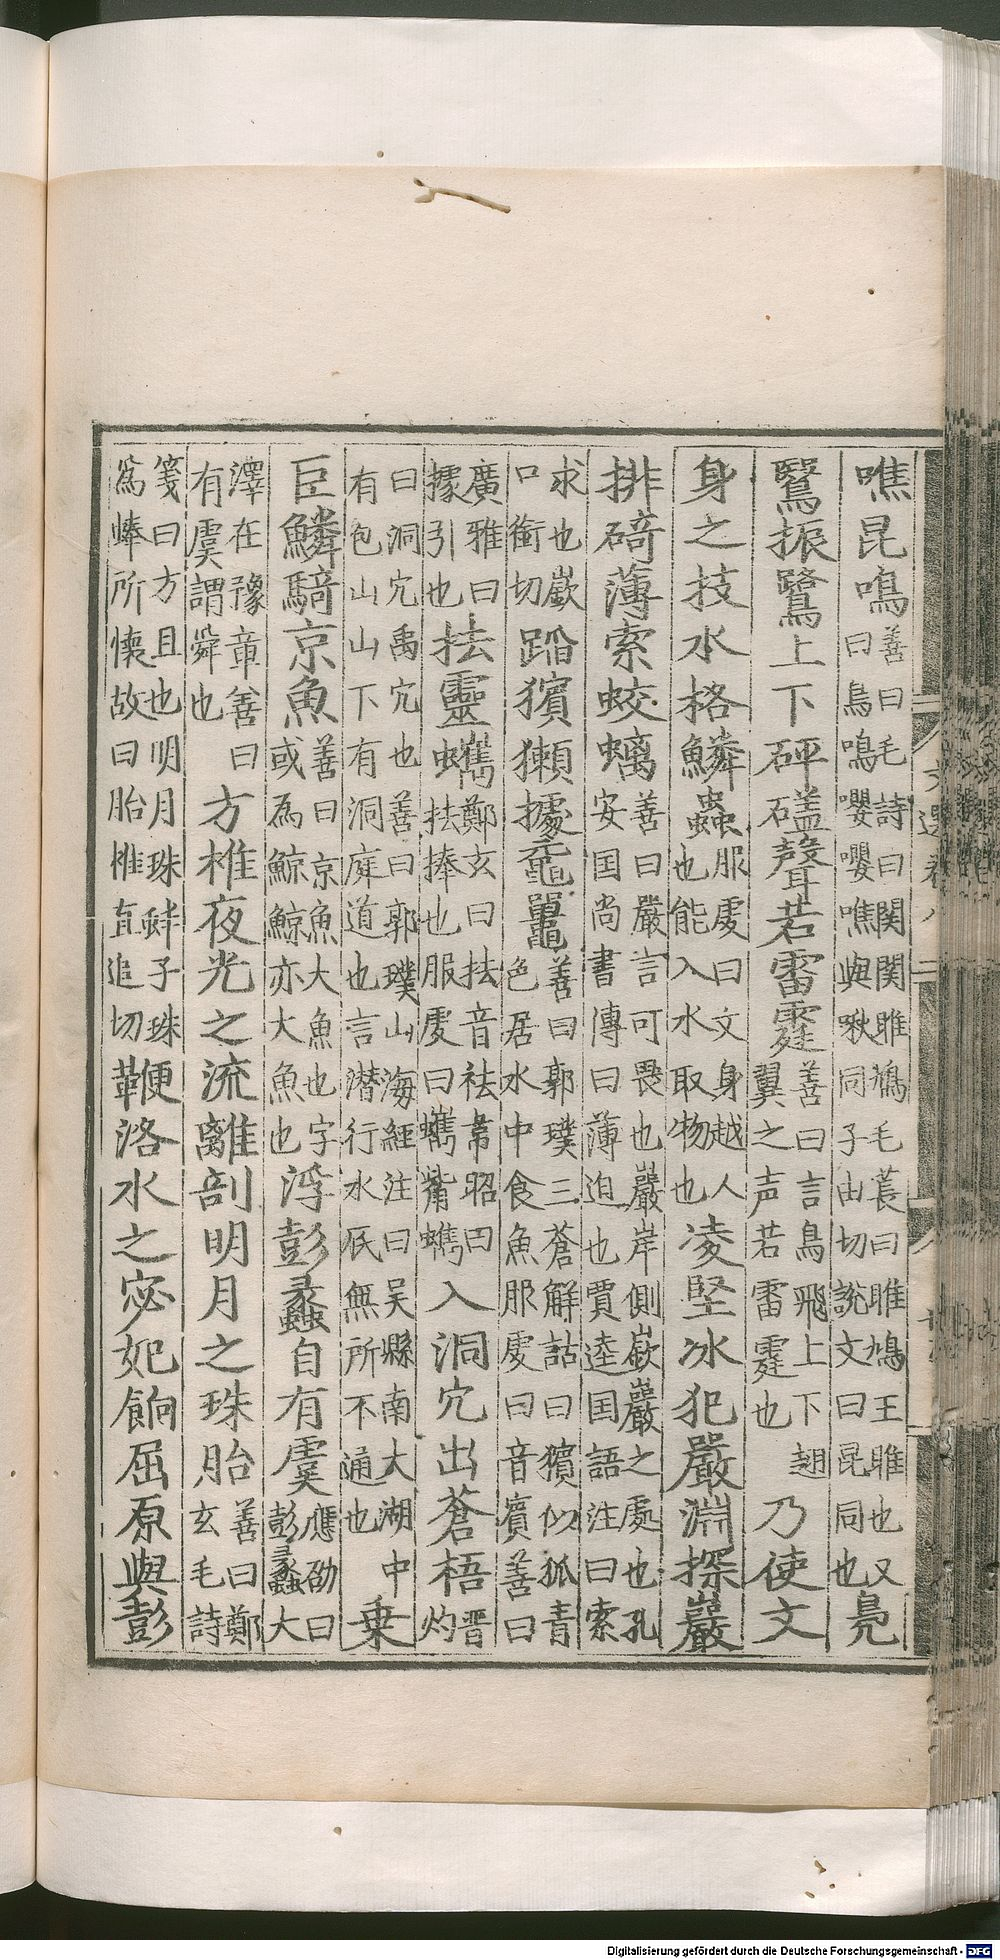 噍昆鳴善曰毛詩曰関関雎鳩毛萇曰雎鳩王雎也又曰鳥鳴嚶嚶噍與啾同子由切說文曰昆同也鳧
鷖振鷺上下砰磕聲若雷霆善曰言鳥飛上下翅翼之声若雷霆也乃使文
身之技水格鱗蟲服虔曰文身越人也能入水取物也凌堅冰犯嚴淵探巖
排碕薄索蛟螭善曰嚴言可畏也巖岸側嶔巖之處也孔安国尚書傳曰薄迫也賈逵国語注曰索
求也嶔口銜切蹈獱獺據黿鼉善曰郭璞三蒼解詁曰獱似狐青色居水中食魚服虔曰音賓善曰
廣雅曰據引也抾靈蠵鄭玄曰抾音祛韋昭曰抾捧也服虔曰蠵觜蠵入洞穴出蒼梧晋灼
曰洞穴禹穴也善曰郭璞山海經注曰吴縣南大湖中有包山山下有洞庭道也言潜行水底無所不通也乗
巨鱗騎京魚善曰京魚大魚也字或為鯨鯨亦大魚也浮彭蠡自有虞應劭曰彭蠡大
澤在豫章善曰有虞謂舜也方椎夜光之流離剖明月之珠胎善曰鄭玄毛詩
箋曰方且也明月珠蚌子珠為蜯所懷故曰胎椎直追切鞭洛水之宓妃餉屈原與彭
文選卷八